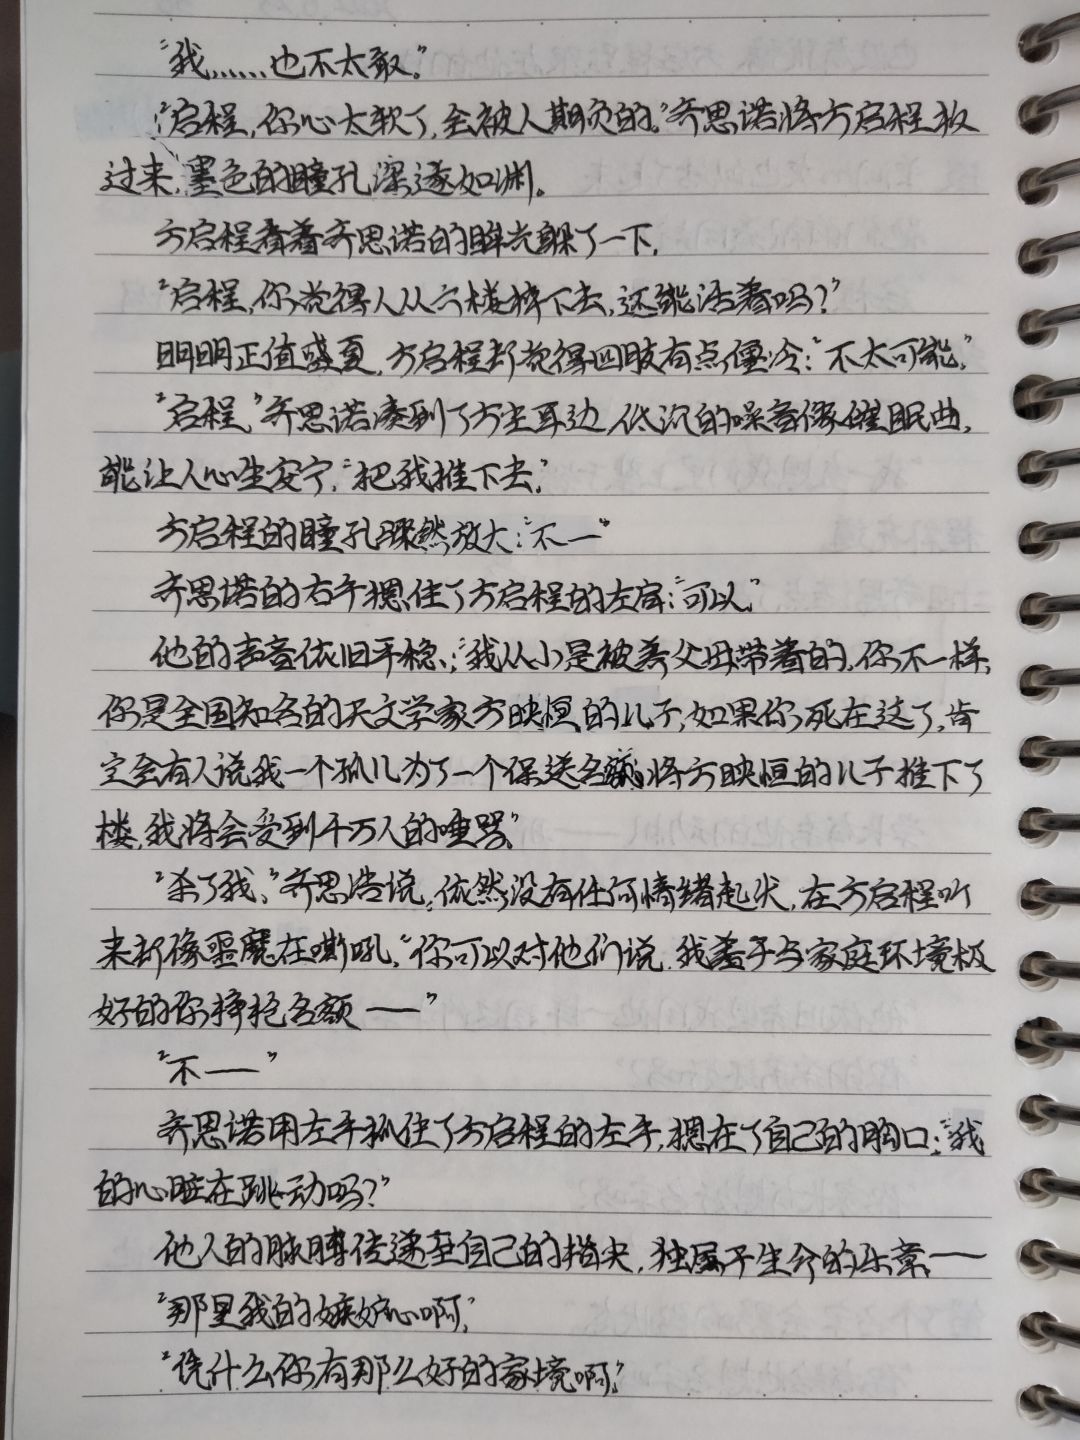 “我……也不太敢。”
“启程，你心太软了，会被人期负的。”齐思诺将方启程扳
过来，墨色的瞳孔深邃如渊。
方启程看着齐思诺的眸光躲了一下。
“启程，你觉得人从六楼摔下去，还能活着吗？”
明明正值盛夏，方启程却觉得四肢有点僵冷：“不太可能。”
“启程，”齐思诺凑到了方尘耳边，低沉的嗓音像催眠曲，
能让人心生安宁，“把我推下去。”
方启程的瞳孔骤然放大：“不—”
齐思诺的右手摁住了方启程的左肩：“可以。”
他的声音依旧平稳：“我从小是被养父母带着的，你不一样，
你是全国知名的天文学家方映恒的儿子，如果你死在这了，肯
定会有人说我一个孤儿为了一个保送名额将方映恒的儿子推下了
楼，我将会受到千万人的唾骂。”
“杀了我，”齐思诺说，依然没有任何情绪起伏，在方启程听
来却像恶魔在嘶吼，“你可以对他们说，我羞于与家庭环境极
好的你掙抢名额——”
“不——”
齐思诺用左手抓住了方启程的左手，摁在了自己的胸口：“我
的心脏在跳动吗？”
他人的脉膊传递至自己的指尖，独属于生命的乐章——
“那里我的嫉妒心啊，”
“凭什么你有那么好的家境啊。”